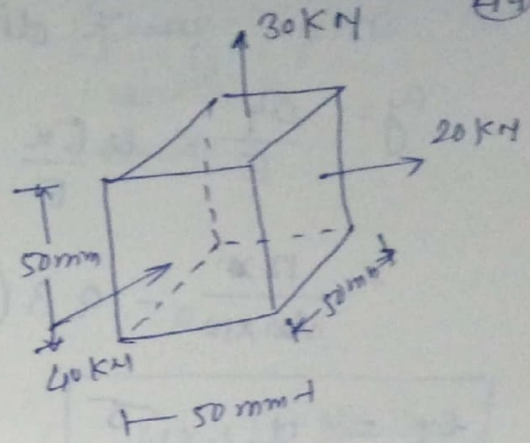 30KN
20KN
50mm
50mm
40KN
50mm